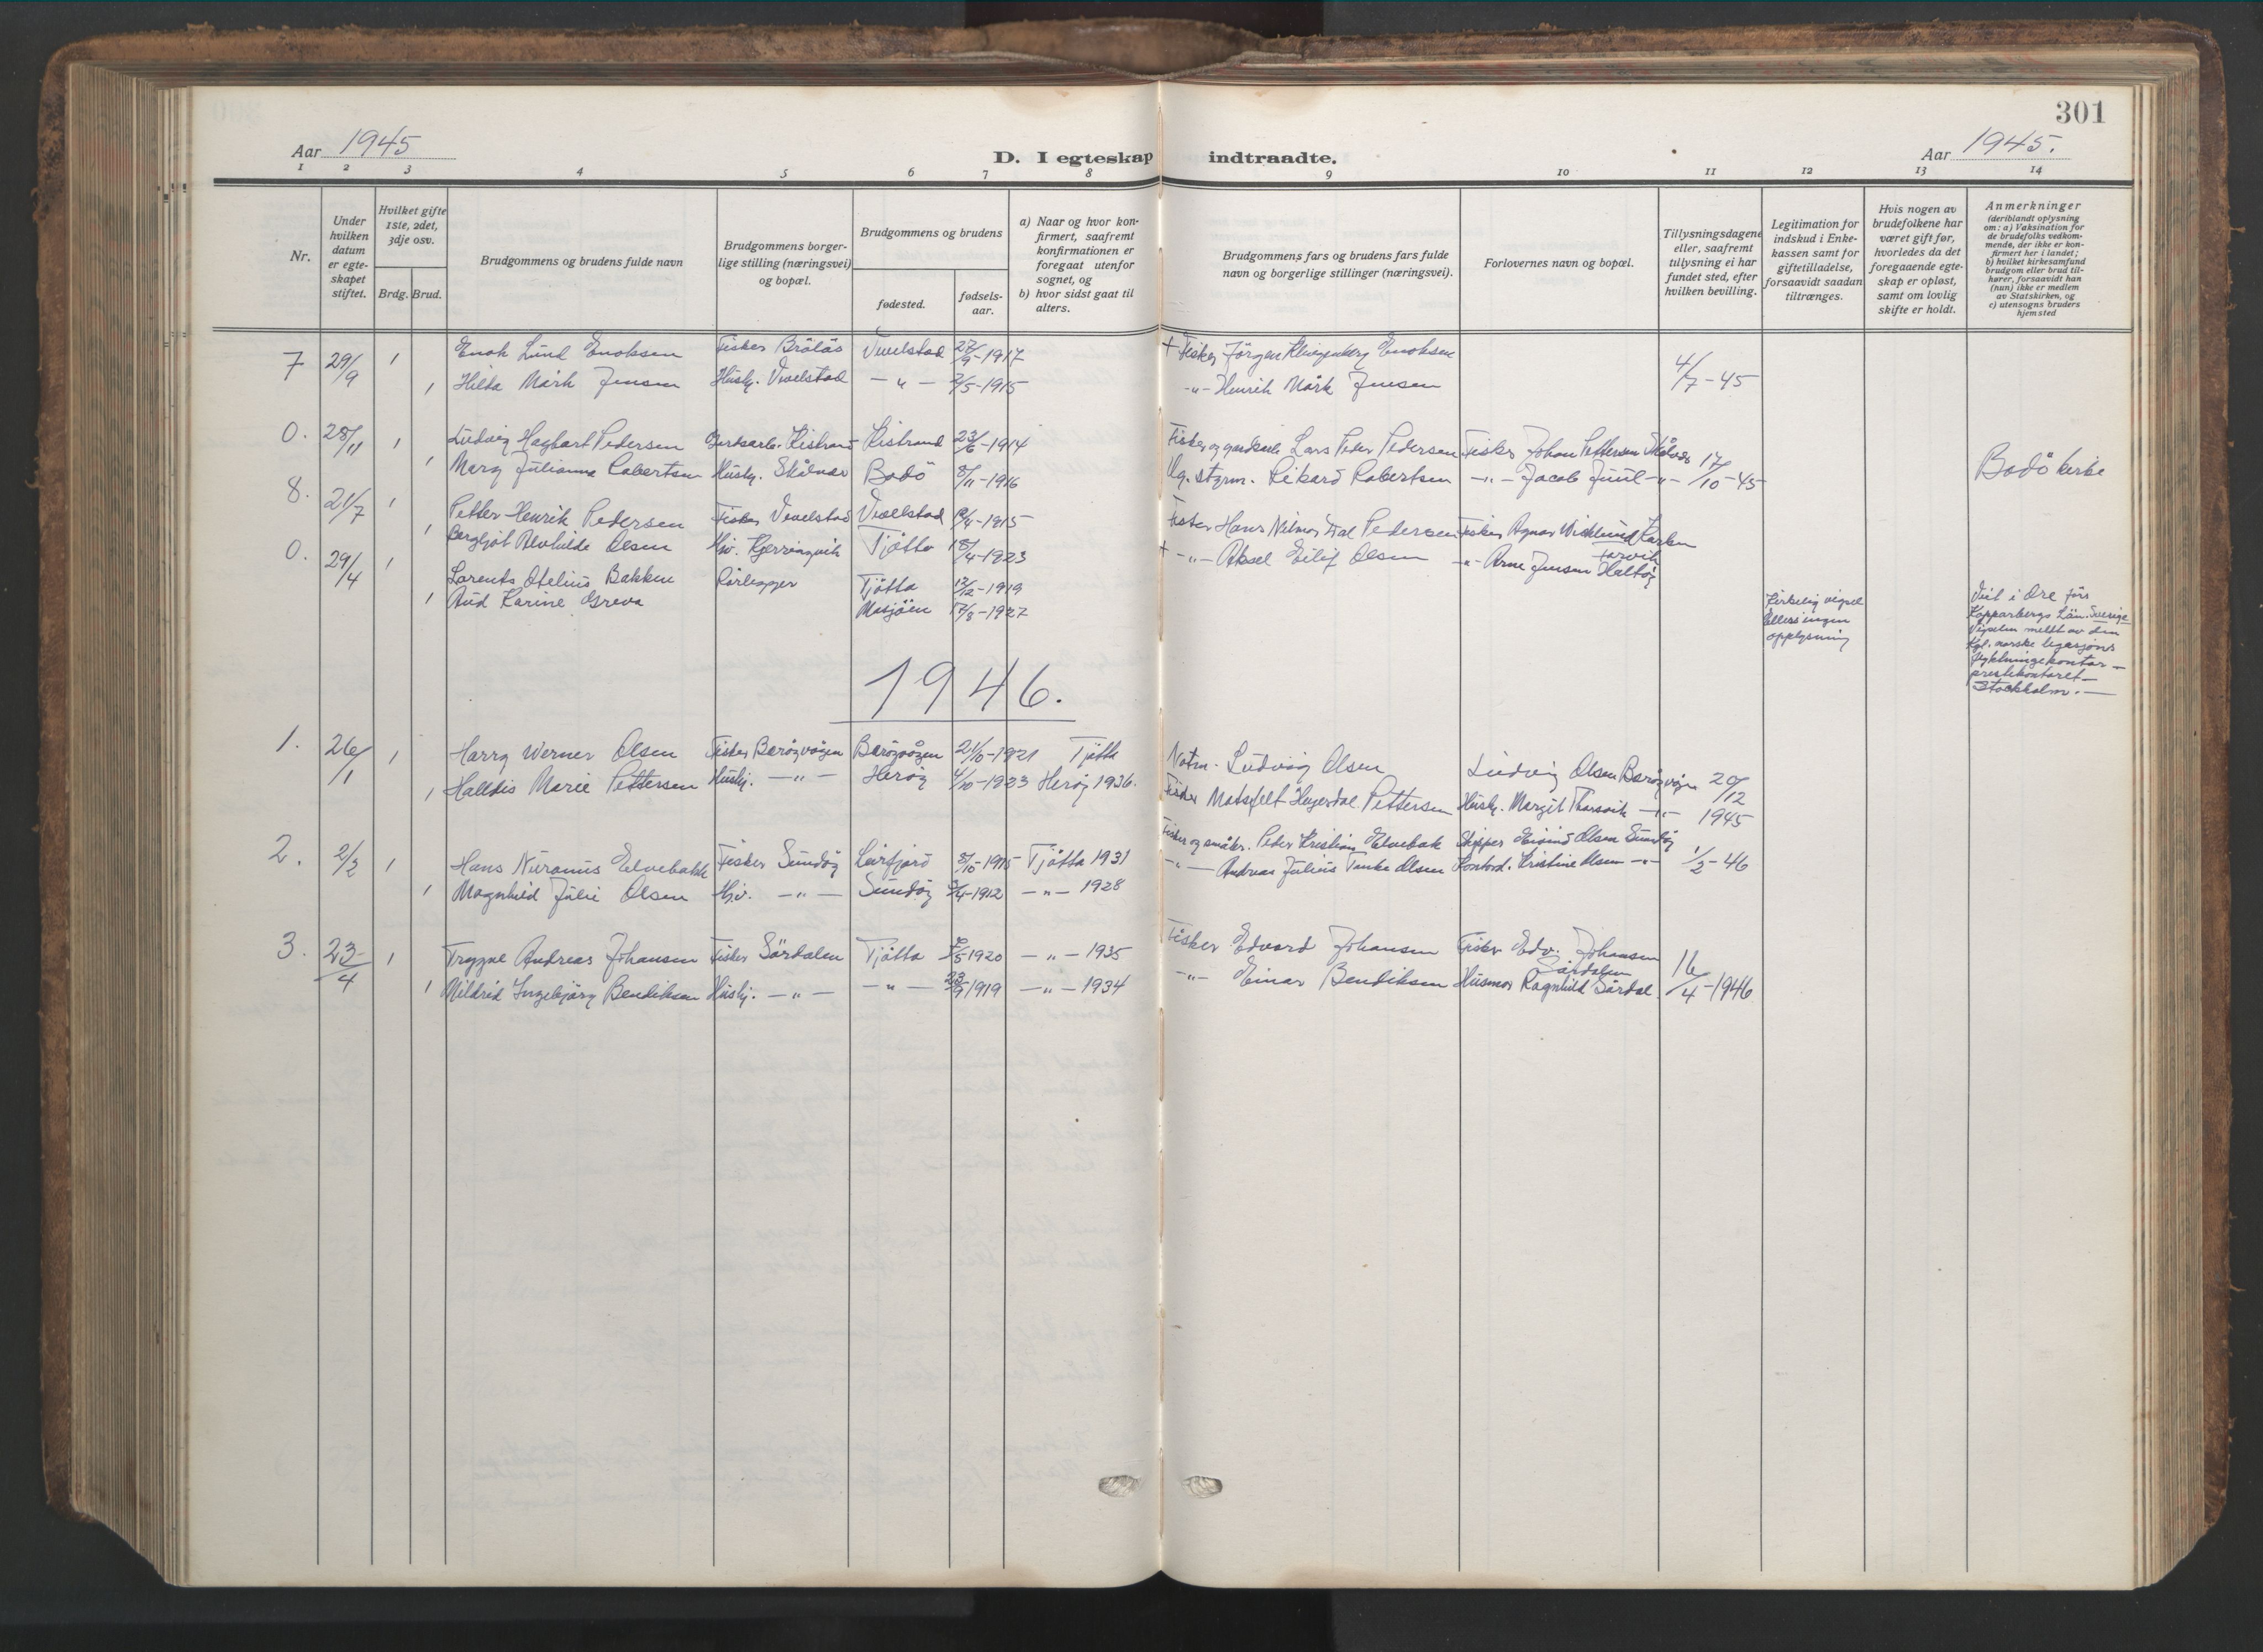 301
Aar 1945
D. I egteskap indtraadte.
Aar 1945.
1 2 3 4 5 6 7 8 9 10 11 12 13 14
Nr.
Under hvilken datum er egteskapet stiftet.
Hvilket gifte 1ste, 2det, 3dje osv.
Brdg. Brud.
Brudgommens og brudens fulde navn
Brudgommens borgerlige stilling (næringsvei) og bopæl.
Brudgommens og brudens
fødested.
fødselsaar.
a) Naar og hvor konfirmert, saafremt konfirmationen er foregaat utenfor sognet, og
b) hvor sidst gaat til alters.
Brudgommens fars og brudens fars fulde navn og borgerlige stillinger (næringsvei).
Forlovernes navn og bopæl.
Tillysningsdagene eller, saafremt tillysning ei har fundet sted, efter hvilken bevilling.
Legitimation for indskud i Enkekassen samt for giftetilladelse, forsaavidt saadan tiltrænges.
Hvis nogen av brudefolkene har været gift før, hvorledes da det foregaaende egteskap er opløst, samt om lovlig skifte er holdt.
Anmerkninger
(deriblandt oplysning om: a) Vaksination for de brudefolks vedkommende, der ikke er konfirmert her i landet; b) hvilket kirkesamfund brudgom eller brud tilhører, forsaavidt han (hun) ikke er medlem av Statskirken, og c) utensogns bruders hjemsted
7 29/9 1 Enok Lund Enoksen Fisker Bråtås Vevelstad 27/9-1917 + Fisker Jörgen Klingenberg Enoksen 4/7-45
1 Hilda Mårk Jensen Hush. Vevelstad -"- 2/5-1915 -"- Henrik Mårk Jensen
0. 28/11 1 Ludvig Hagbart Pedersen Kistrand Kistrand 23/6-1914 Fisker og Lars Peder Pedersen Fisker Johan Pettersen Skålvær 17/10-45 Bodö kirke
1 Mary Julianna Robertsen Hush. Skålvær Bodö 8/11-1916 styrm. Rikard Robertsen -"- Jacob Juul -"-
8. 21/7 1 Petter Henrik Pedersen Fisker Vevelstad Vevelstad /4-1915 Fisker Hans Dal Pedersen Fisker Agnar Wicklund
1 Bergljot Alvhilde Olsen Hjv. Kjerringvik Tjötta 18/4-1923 + -"- Aksel Eilif Olsen -"- Arne Jensen
0. 29/4 1 Lorents Otelius Bakken Rörlegger Tjötta 13/12-1919 Kirkelig vigsel Ellers ingen opplysning
1 Aud Karine Greva Mosjöen 17/8-1927
Viet i Ore förs
Kopparbergs Län. Sverige
Vigselen meldt av den
Kgl. norske legasjons
flyktningekontor -
prestekontoret -
Stockholm. -
1946.
1. 26/1 1 Harry Werner Olsen Fisker Baröyvågen Baröyvågen 21/10-1921 Tjötta Notm. Ludvig Olsen Ludvig Olsen Baröyvågen 20/12
1 Halldis Marie Pettersen Hush. -"- Heröy 4/10-1923 Heröy 1936. Fisker Hagerdal Pettersen Hush. Margit -"- 1945
2. 2/2 1 Hans Elvebakk Fisker Sundöy Leirfjord 8/10-1915 Tjötta 1931 Fisker og småbr. Peder Kristian Elvebak Skipper Eivind Olsen Sundöy 1/2-46
1 Magnhild Julie Olsen Hjv. -"- Sundöy /4-1912 -"- 1928 -"- Andreas Julius Olsen Kristine Olsen -"-
3. 23/4 1 Trygve Andreas Johansen Fisker Sördalen Tjötta /5 1920 -"- 1935 Fisker Edvard Johansen Fisker Edv. Johansen Sördalen 16/4-1946
1 Mildrid Ingebjörg Bendiksen Hush. -"- -"- 23/9 1919 -"- 1934 -"- Einar Bendiksen Husmor Ragnhild Sördal.